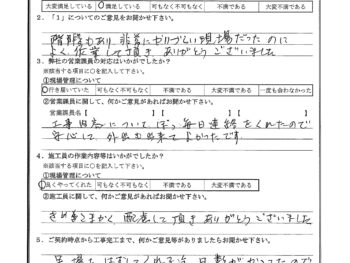 大変満足している 満足している 可もなく不可もなく 不満である 大変不満である
2.「1」についてのご意見をお聞かせ下さい。
階段もあり、非常にやりづらい現場だったのに
よく作業して頂きありがとうございました
3.弊社の営業課員の対応はいかがでしたか？
※該当する項目に○を記入して下さい。
①現場管理について
行き届いていた 可もなく不可もなく 不満である 大変不満である 一度も会わなかった
②営業課員に関して、何かご意見があればお聞かせ下さい。
営業課員名【 】【 】【 】
工事内容について 毎日連絡をくれたので
安心して、外出も出来てよかったです。
4.施工員の作業内容等はいかがでしたか？
※該当する項目に○を記入して下さい。
①現場管理について
良くやってくれた 可もなく不可もなく 不満である 大変不満である
②施工員に関して、何かご意見があればお聞かせ下さい。
きめ細かく、配慮して頂きありがとうございました
5.ご契約時点から工事完工まで、何かご意見等がありましたらお聞かせ下さい。